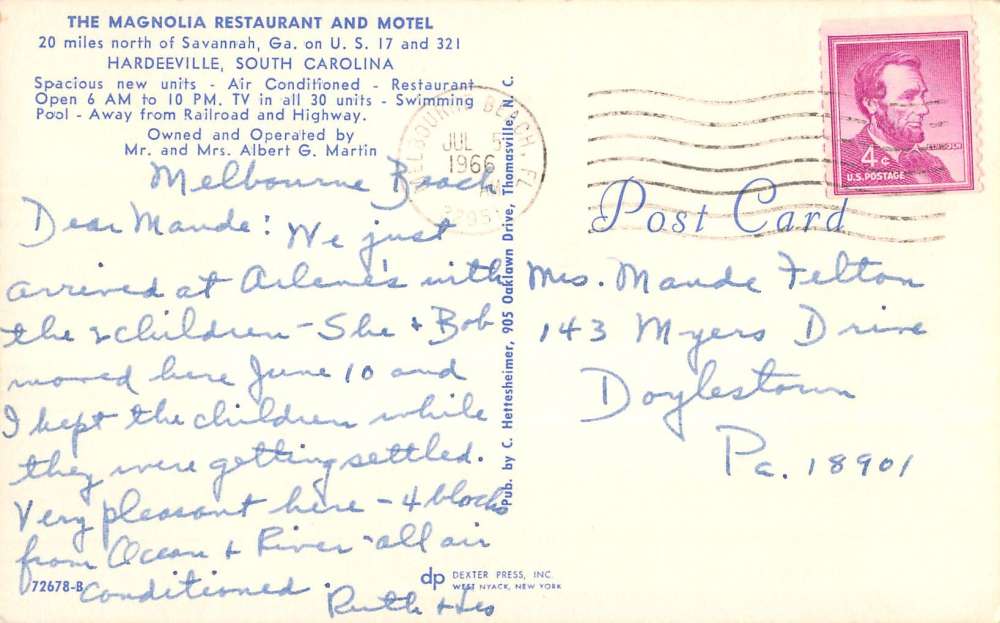 THE MAGNOLIA RESTAURANT AND MOTEL
20 miles north of Savannah, Ga. on U. S. 17 and 321
HARDEEVILLE, SOUTH CAROLINA
Spacious new units - Air Conditioned - Restaurant
Open 6 AM to 10 PM. TV in all 30 units - Swimming
Pool - Away from Railroad and Highway.
Owned and Operated by
Mr. and Mrs. Albert G. Martin
Melbourne Beach
Dear Maude: We just
arrived at Arlene's with
the 2 children - She & Bob
moved here June 10 and
I kept the children while
they were getting settled.
Very pleasant here - 4 blocks
from Ocean & River - all air
conditioned.
Ruth & Les
72678-B
Pub. by C. Hettesheimer, 905 Oaklawn Drive, Thomasville, N. C.
dp DEXTER PRESS, INC.
WEST NYACK, NEW YORK
MELBOURNE BEACH, FL
JUL 5
1966
LINCOLN
4¢
U.S. POSTAGE
Post Card
Mrs. Maude Felton
143 Myers Drive
Doylestown
Pa. 18901